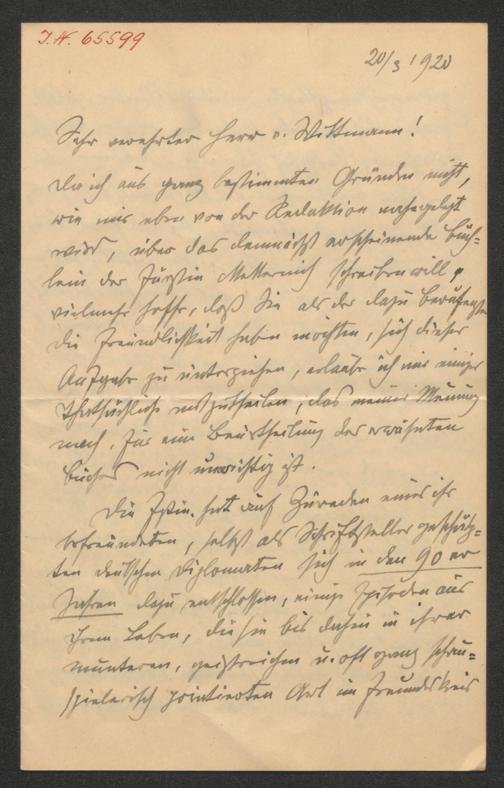 J.N. 65599
20/3 1920
Sehr verehrter Herr v. Wittmann!
Da ich aus ganz bestimmten Gründen nicht,
wie mir eben von der Redaktion nahegelegt
wird, über das demnächst erscheinende Büch-
lein der Fürstin Metternich schreiben will,
vielmehr hoffe, daß Sie als der dazu Berufenste
die Freundlichkeit haben möchten, sich dieser
Aufgabe zu unterziehen, erlaube ich mir einiges
Thatsächliche mitzutheilen, das meiner Meinung
nach für eine Beurtheilung des erwähnten
Buches nicht unwichtig ist.
Die Fstin. hat auf Zureden eines ihr
befreundeten, selbst als Schriftsteller geschätz-
ten deutschen Diplomaten sich in den 90er
Jahren dazu entschlossen, einige Episoden aus
ihrem Leben, die sie bis dahin in ihrer
munteren, geistreichen u. oft ganz schau-
spielerisch pointierten Art im Freundeskreis